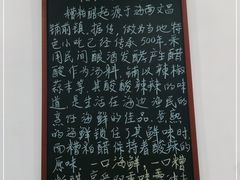 糟粕醋起源于海南文昌
铺前镇,据传,做为当地特
色小吃已经传承500年,采
用民间酿酒发酵产生醋
酸作为汤料,辅以辣椒
蒜末等,其酸辣开胃的味
道是生活在海边渔民的
煮任海鲜的佳品。煮熟
的海鲜锁住了其鲜味时
而糟粕醋保持着酸辣的
原味。一口海鲜,一口糟